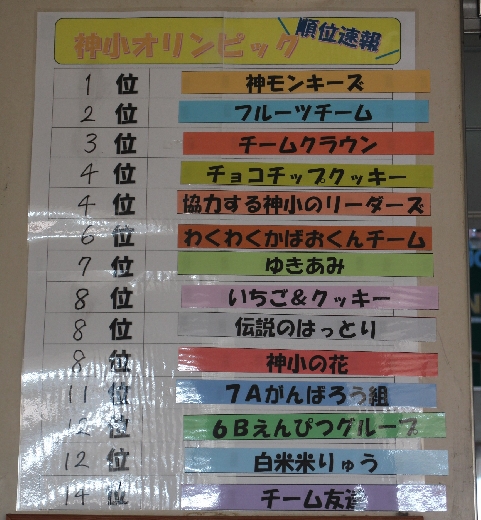 神小オリンピック 順位速報
1 位 神モンキーズ
2 位 フルーツチーム
3 位 チームクラウン
4 位 チョコチップクッキー
4 位 協力する神小のリーダーズ
6 位 わくわくかばおくんチーム
7 位 ゆきあみ
8 位 いちご&クッキー
8 位 伝説のはっとり
8 位 神小の花
11 位 7Aがんばろう組
12 位 6Bえんぴつグループ
12 位 白米米りゅう
14 位 チーム友達